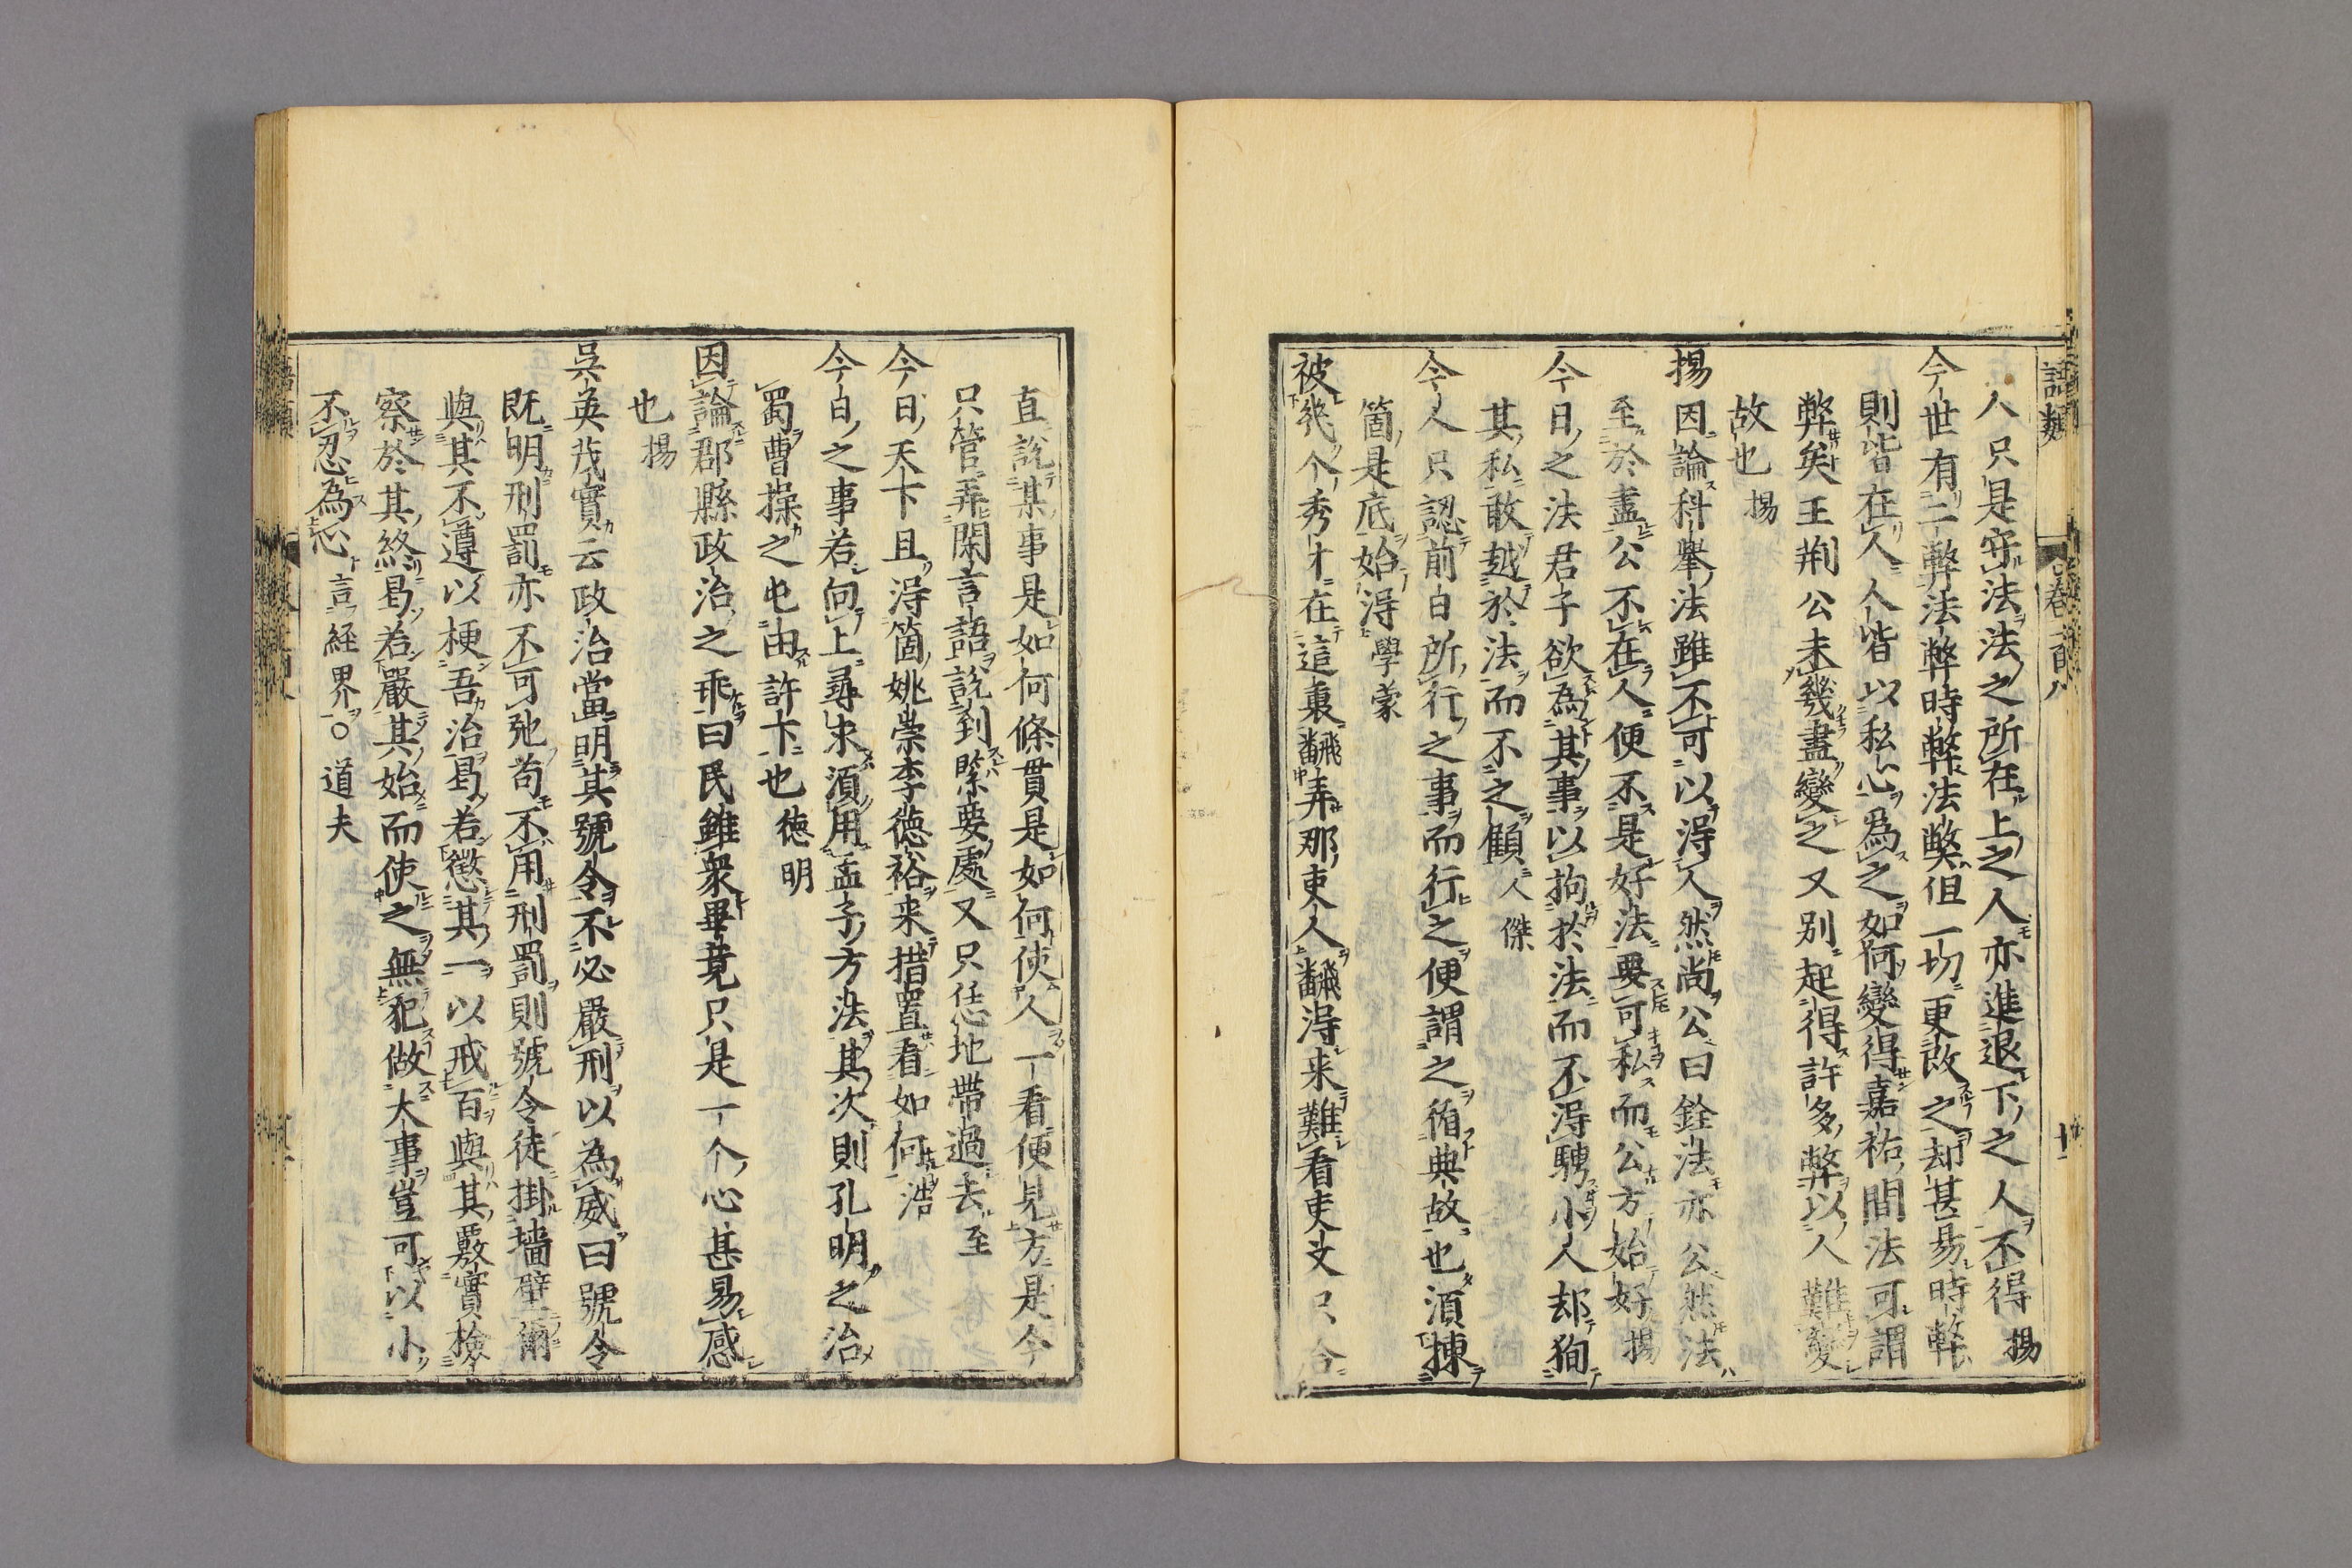 語類
卷一百八
十一
人只是守法法之所在上之人亦進退下之人不得 揚
今世有二弊法弊時弊法弊但一切更改之却甚易時弊
則皆在人人皆以私心爲之如何變得嘉祐間法可謂
弊矣王荆公未幾盡變之又別起得許多弊以人難變
故也 揚
揚因論科舉法雖不可以得人然尚公曰銓法亦公然法
至於盡公不在人便不是好法要可私而公方始好 揚
今日之法君子欲為其事以拘於法而不得騁小人却徇
其私敢越於法而不之顧 人傑
今人只認前日所行之事而行之便謂之循典故也湏揀
箇是底始得 學蒙
被幾个秀才在這裏飜弄那吏人飜得来難看吏文只合
直說某事是如何條貫是如何使人一看便見方是今
只管弄閑言語說到緊要處又只恁地帶過去 至
今日天下且得箇姚崇李徳裕来措置看如何 浩
今日之事若向上尋求湏用孟子方法其次則孔明之治
蜀曹操之屯田許下也 徳明
因論郡縣政治之乖曰民雖衆畢竟只是一个心甚易感
也 揚
吳英茂實云政治當明其號令不必嚴刑以為威曰號令
既明刑罰亦不可弛苟不用刑罰則號令徒掛墻壁爾
與其不遵以梗吾治曷若懲其一以戒百與其覈實檢
察於其終曷若嚴其始而使之無犯做大事豈可以小
不忍為心 言經界○道夫